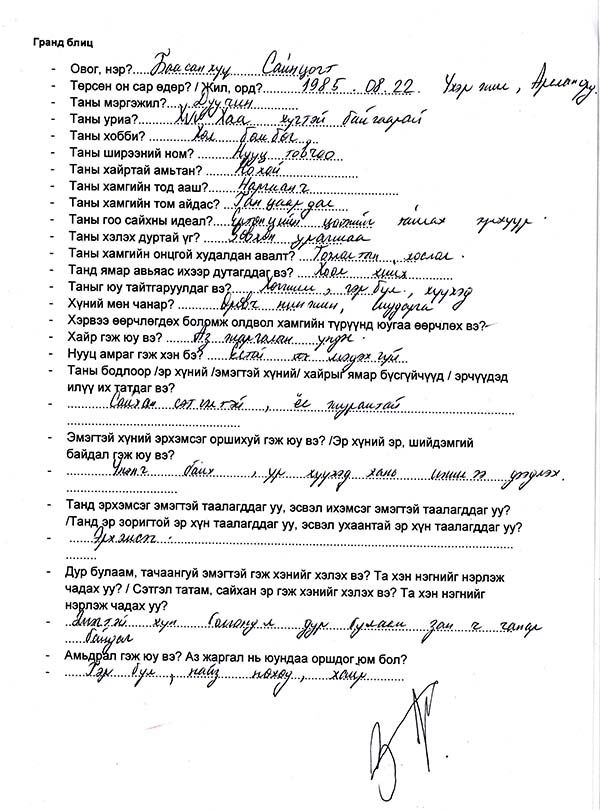 Гранд блиц
- Овог, нэр? Баасанхүү Сайнцогт
- Төрсөн он сар өдөр? / Жил, орд? 1985 . 08.22. Үхэр жил, Арслан
- Таны мэргэжил? Дуучин
- Таны уриа? Хаа хүчтэй байгаарай
- Таны хобби? Хөл бөмбөг
- Таны ширээний ном? Нууц товчоо
- Таны хайртай амьтан? Нохой
- Таны хамгийн тод ааш?
- Таны хамгийн том айдас?
- Таны гоо сайхны идеал?
- Таны хэлэх дуртай үг? Зөвхөн урагшаа
- Таны хамгийн онцгой худалдан авалт?
- Танд ямар авьяас ихээр дутагддаг вэ? Хоол хийх
- Таныг юу тайтгаруулдаг вэ? Хөгжим, гэр бүл, хүүхэд
- Хүний мөн чанар? шударга
- Хэрвээ өөрчлөгдөх боломж олдвол хамгийн түрүүнд юугаа өөрчлөх вэ?
- Хайр гэж юу вэ? Аз жаргалын үндэс
- Нууц амраг гэж хэн бэ?
- Таны бодлоор /эр хүний /эмэгтэй хүний/ хайрыг ямар бүсгүйчүүд / эрчүүдэд
илүү их татдаг вэ?
- Сайхан сэтгэлтэй, ёс журамтай
- Эмэгтэй хүний эрхэмсэг оршихуй гэж юу вэ? /Эр хүний эр, шийдэмгий
байдал гэж юу вэ?
- Үнэнч байх, үр хүүхэд хань ижилээ
- Танд эрхэмсэг эмэгтэй таалагддаг уу, эсвэл ихэмсэг эмэгтэй таалагддаг уу?
/Танд эр зоригтой эр хүн таалагддаг уу, эсвэл ухаантай эр хүн таалагддаг уу?
- Эрхэмсэг.
- Дур булаам, тачаангуй эмэгтэй гэж хэнийг хэлэх вэ? Та хэн нэгнийг нэрлэж
чадах уу? / Сэтгэл татам, сайхан эр гэж хэнийг хэлэх вэ? Та хэн нэгнийг
нэрлэж чадах уу?
- Эмэгтэй хүн болгонд л дур булаам зан ч чанар
байдаг
- Амьдрал гэж юу вэ? Аз жаргал нь юундаа оршдог юм бол?
- Гэр бүл, найз нөхөд, хайр